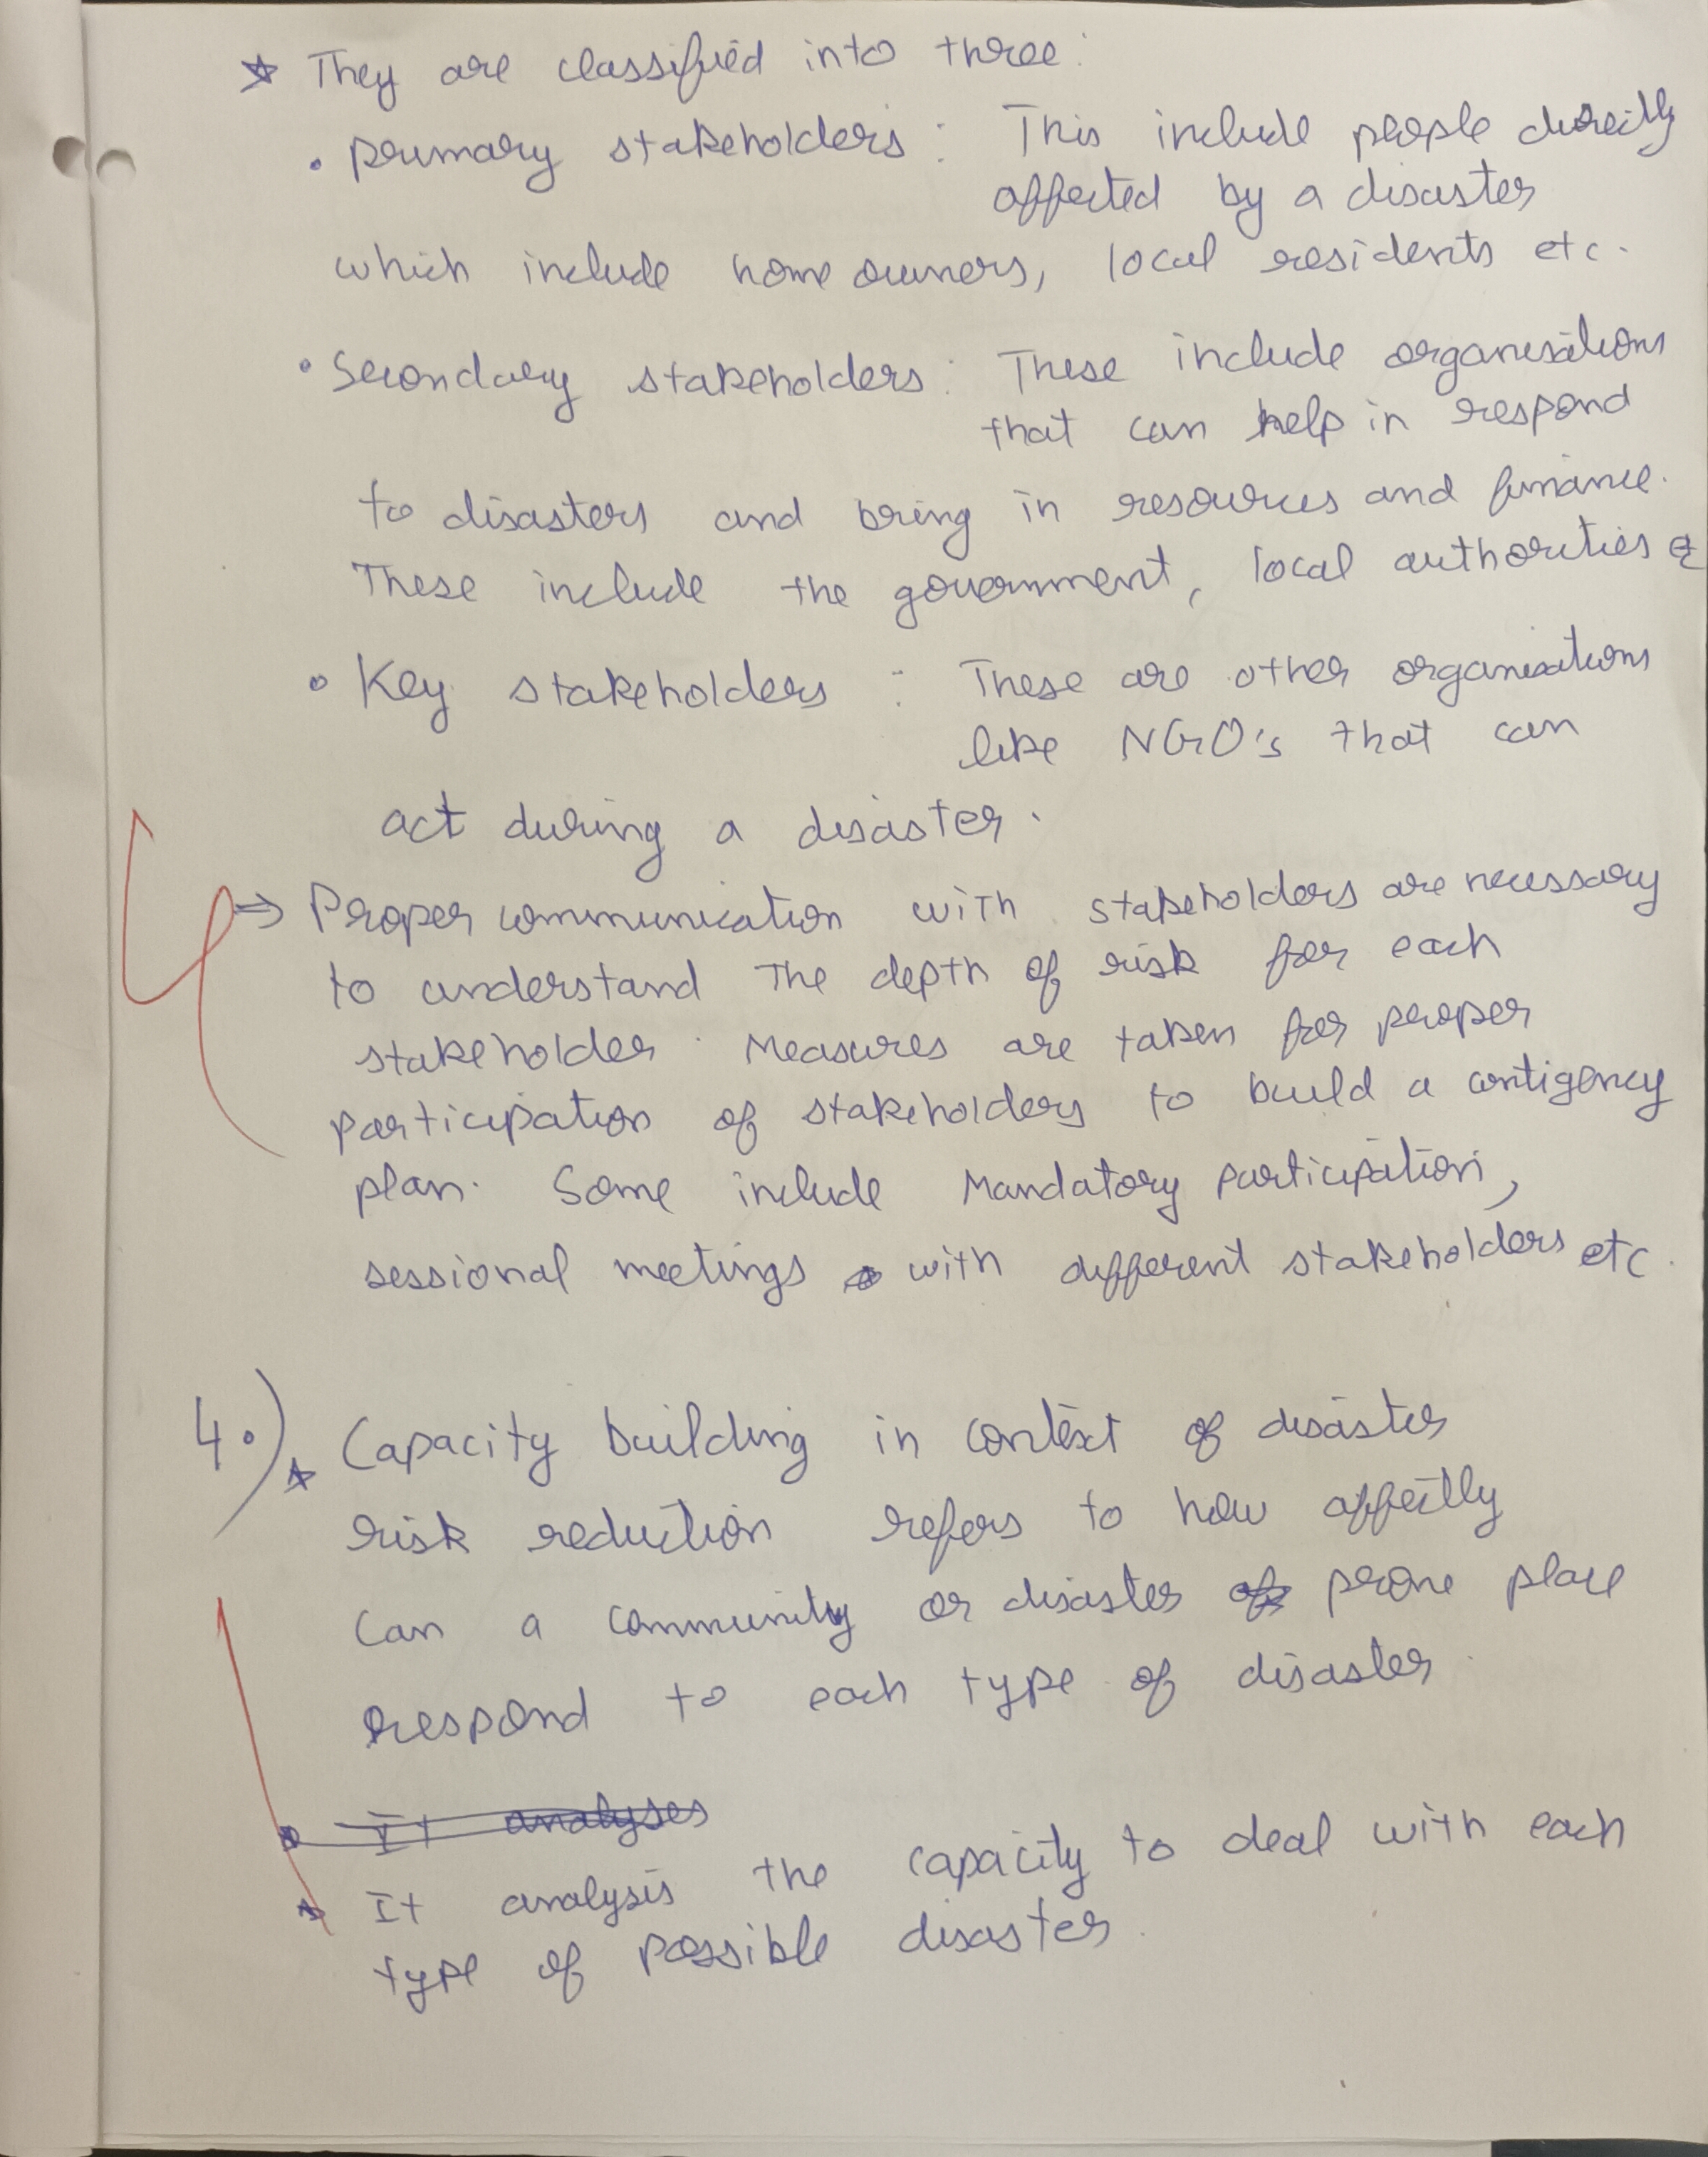 ☆ They are classified into three:
• primary stakeholders : This include people directly
affected by a disaster
which include home owners, local residents etc.
• Secondary stakeholders : These include organisations
that can help in respond
to disasters and bring in resources and finance.
These include the government, local authorities &
• Key stakeholders : These are other organisations
like NGO's that can
act during a disaster.
⇒ Proper communication with stakeholders are necessary
to understand the depth of risk for each
stakeholder. Measures are taken for proper
participation of stakeholders to build a contigency
plan. Some include Mandatory participation,
sessional meetings with different stakeholders etc.
4.) ☆ Capacity building in context of disaster
risk reduction refers to how affectly
can a community or disaster prone place
respond to each type of disaster.
It analyses
☆ It analysis the capacity to deal with each
type of possible disaster.